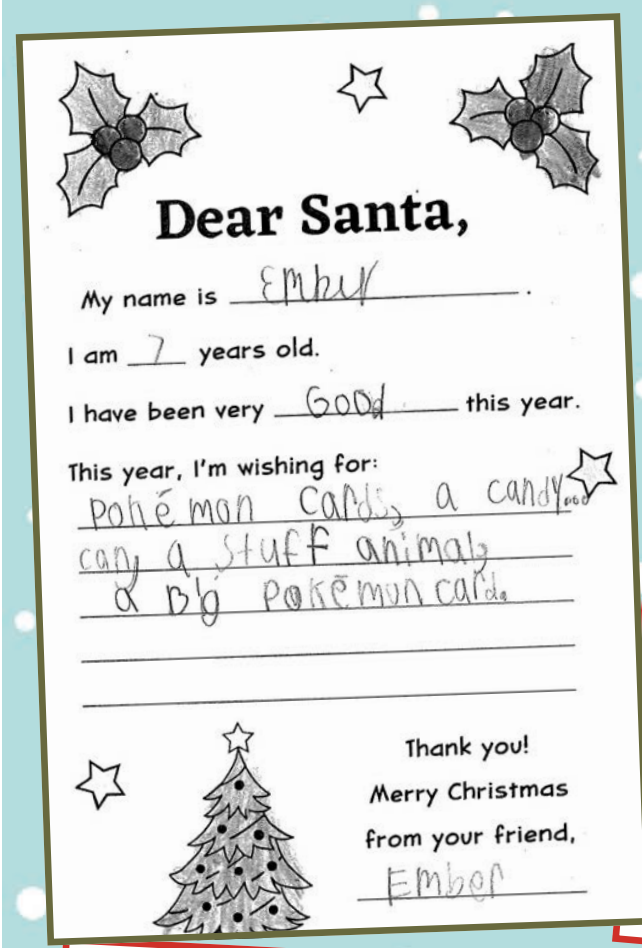 Dear Santa,
My name is Ember .
I am 7 years old.
I have been very Good this year.
This year, I'm wishing for:
Pokémon Cards, a candy
can, a stuff animal,
a Big Pokēmon card.
Thank you!
Merry Christmas
from your friend,
Ember